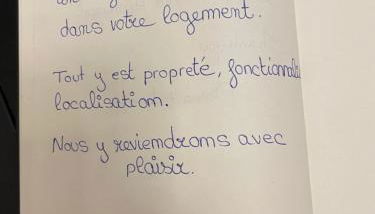 dans votre logement.
Tout y est propreté,
localisation.
Nous y reviendrons avec
plaisir.